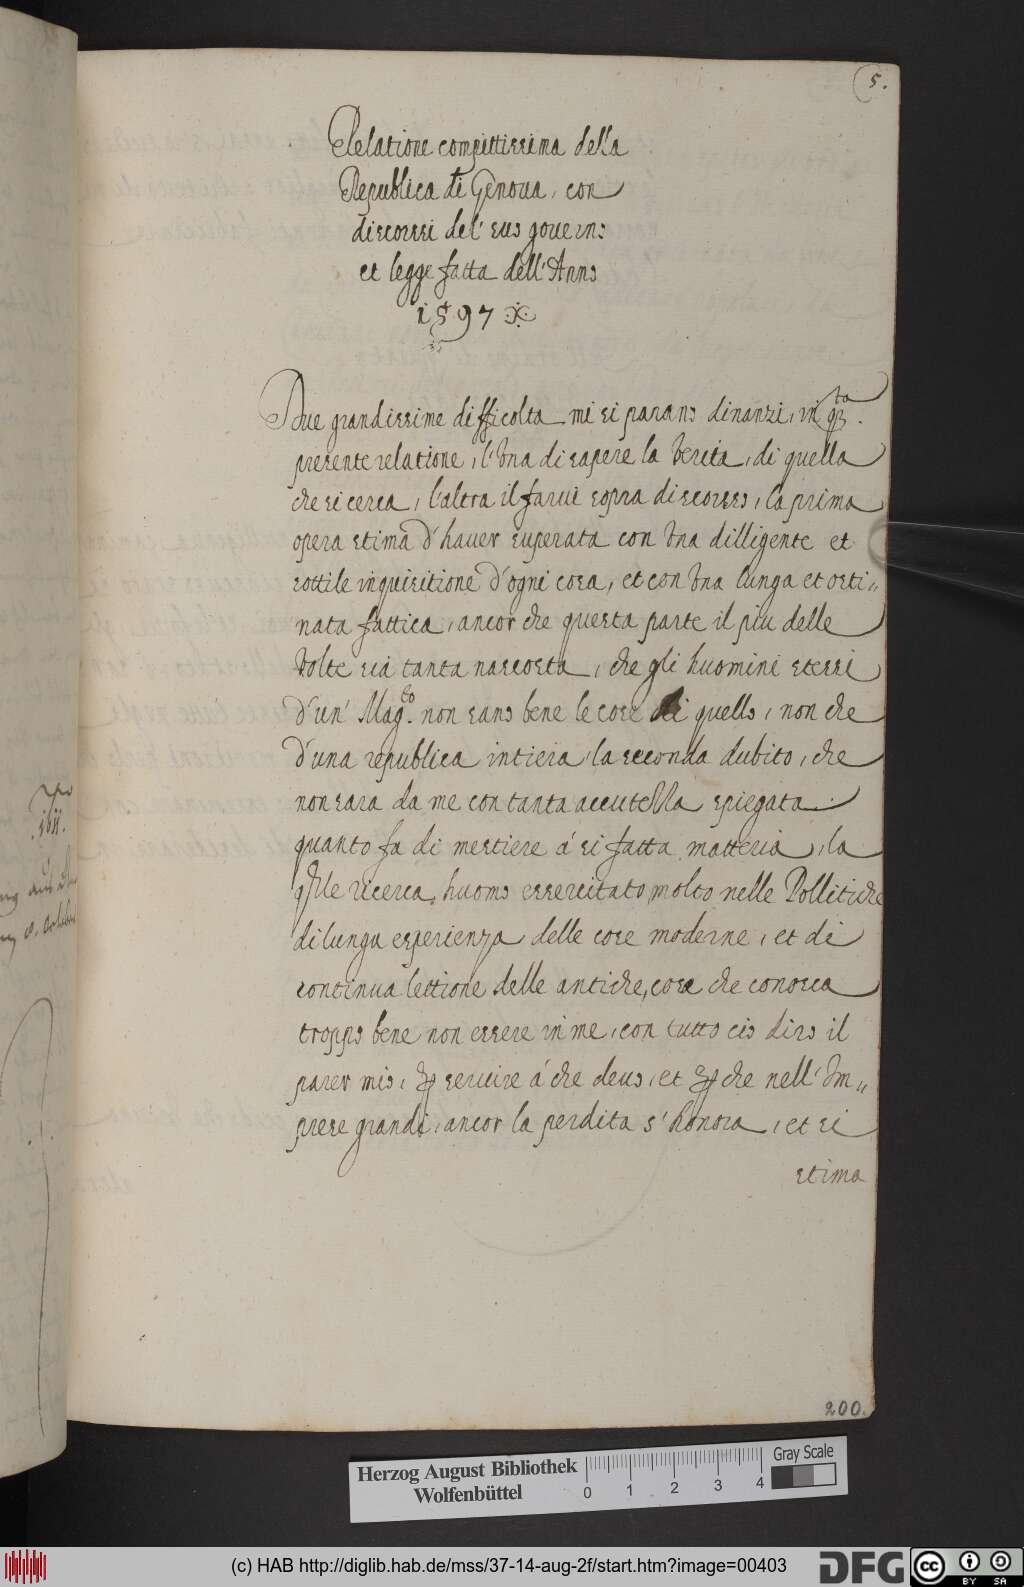 5.
Relatione compittissima della
Republica di Genoua, con
discorsi del' suo gouerno
et legge fatta dell' Anno
1597
Due grandissime difficolta mi si parano dinanzi, in q.ta
presente relatione, l'Vna di sapere la Verita, di quella
che si cerca, l'altra il farui sopra discorso, la prima
opera stima d'hauer superata con Vna dilligente et
sottile inquisitione d'ogni cosa, et con Vna lunga et osti„
nata fattica, ancor che questa parte il piu delle
Volte sia tanta nascosta, che gli huomini stessi
d'un' Mag.to non sano bene le cose di quello, non che
d'una republica intiera, la seconda dubito, che
non sara da me con tanta accutella spiegata
quanto fa di mestiere á si fatta matteria, la
qle ricerca huomo essercitato molto nelle Pollitiche
di lunga esperienza delle cose moderne, et di
continua lettione delle antiche, cosa che conosca
troppo bene non essere in me, con tutto cio diro il
parer mio, p seruire á che deuo, et p che nell' Im„
prese grandi, ancor la perdita s'honora, et si
stima
200.
1611.
Herzog August Bibliothek
Wolfenbüttel
0 1 2 3 4
Gray Scale
(c) HAB http://diglib.hab.de/mss/37-14-aug-2f/start.htm?image=00403
DFG
CC BY SA